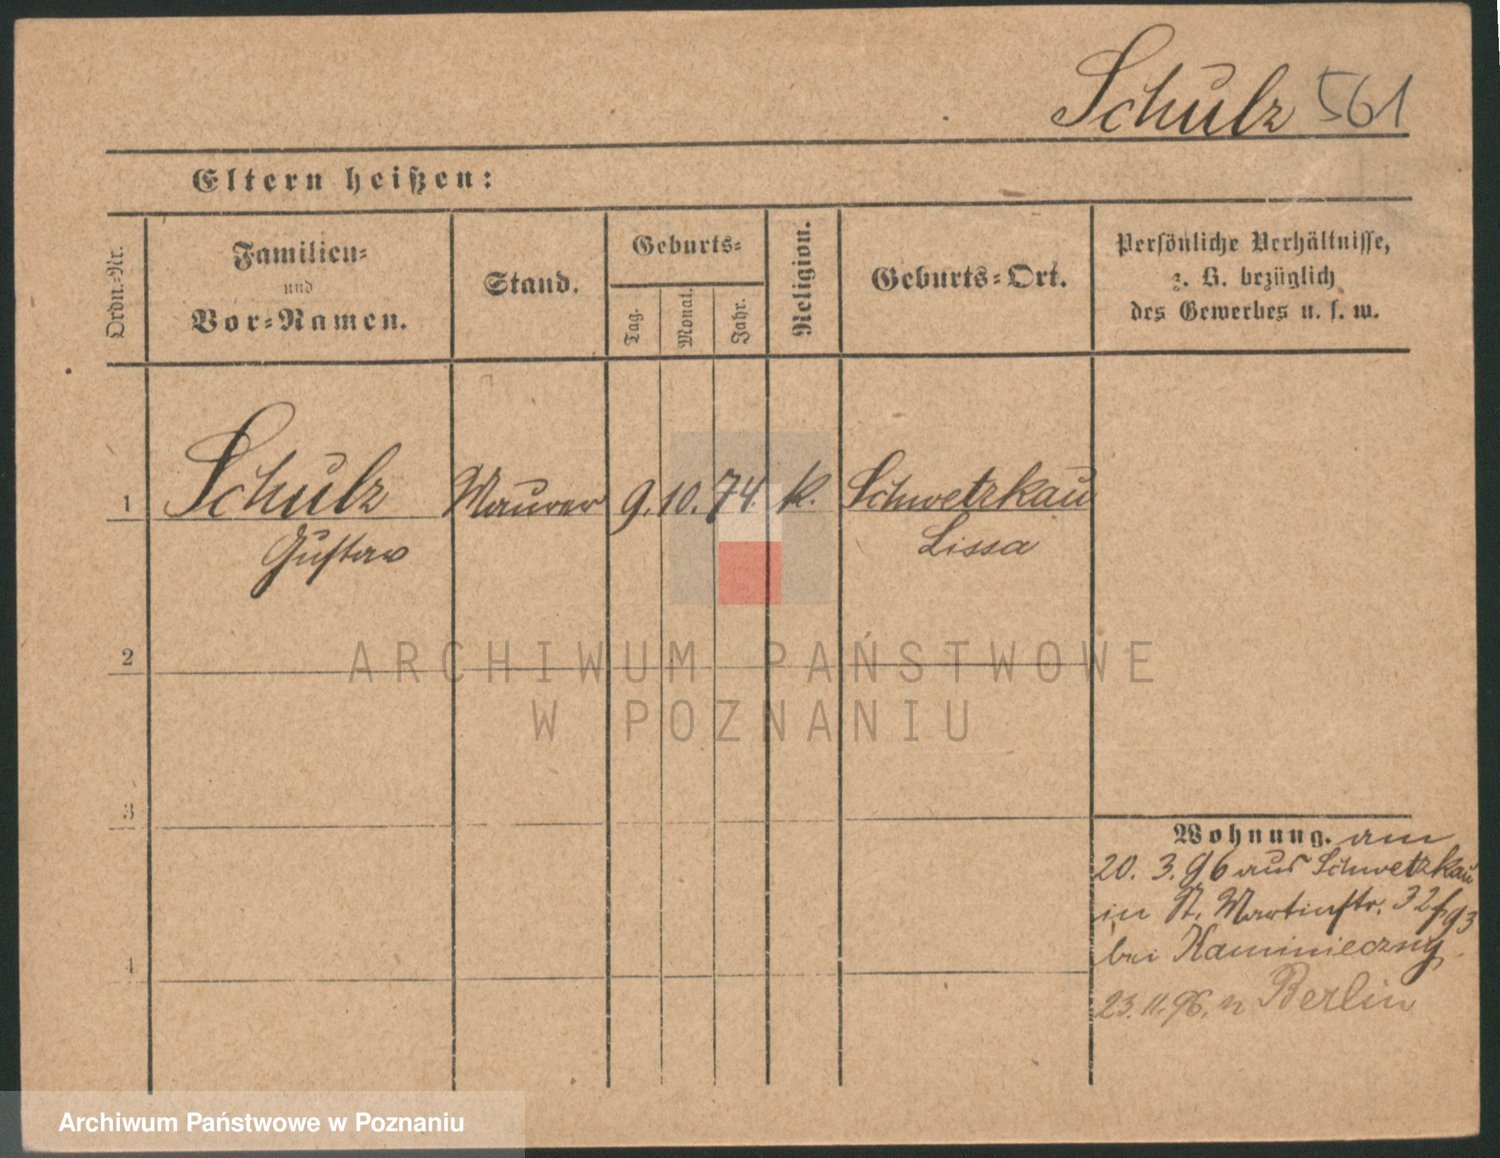 Schulz 561
Eltern heißen:
Ordn.-Nr.
Familien-
und
Vor-Namen.
Stand.
Geburts-
Tag.
Monat.
Jahr.
Religion.
Geburts-Ort.
Persönliche Verhältnisse,
z. B. bezüglich
des Gewerbes u. s. w.
1 Schulz Maurer 9. 10. 74. k. Schwetzkau
Gustav Lissa
2
ARCHIWUM PAŃSTWOWE
W POZNANIU
3
Wohnung. am
20. 3. 96 aus Schwetzkau
in St. Martinstr. 32
bei Kaminieczny.
4
23. 11. 96. n Berlin
Archiwum Państwowe w Poznaniu